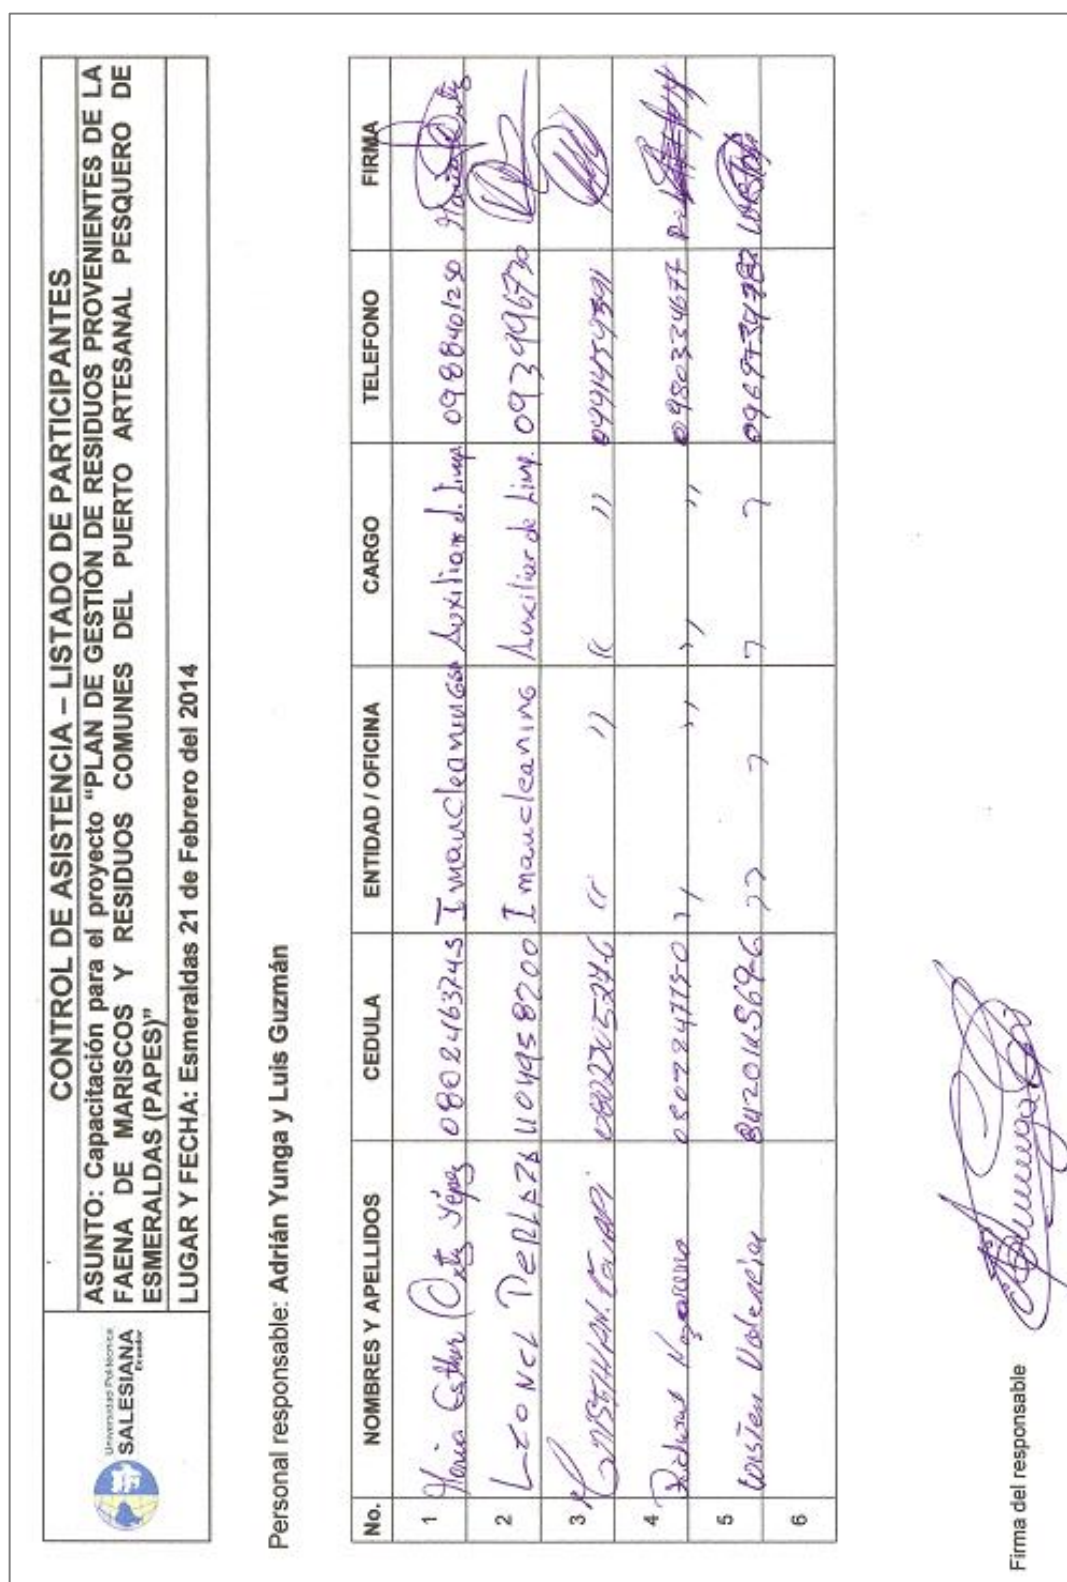 Universidad Politécnica
SALESIANA
Ecuador
CONTROL DE ASISTENCIA – LISTADO DE PARTICIPANTES
ASUNTO: Capacitación para el proyecto “PLAN DE GESTIÓN DE RESIDUOS PROVENIENTES DE LA
FAENA DE MARISCOS Y RESIDUOS COMUNES DEL PUERTO ARTESANAL PESQUERO DE
ESMERALDAS (PAPES)”
LUGAR Y FECHA: Esmeraldas 21 de Febrero del 2014
Personal responsable: Adrián Yunga y Luis Guzmán
No. NOMBRES Y APELLIDOS CEDULA ENTIDAD / OFICINA CARGO TELEFONO FIRMA
1 Maria Esther Ortiz Yépez 0802463745 Auxiliar d. Limp. 0988401250
2 Leonel 1104958700 Imaucleaning Auxiliar de Limp. 0939996730
3 " " " "
4 Nazareno " " " " 0980334677
5 Valencia " " " "
6
Firma del responsable